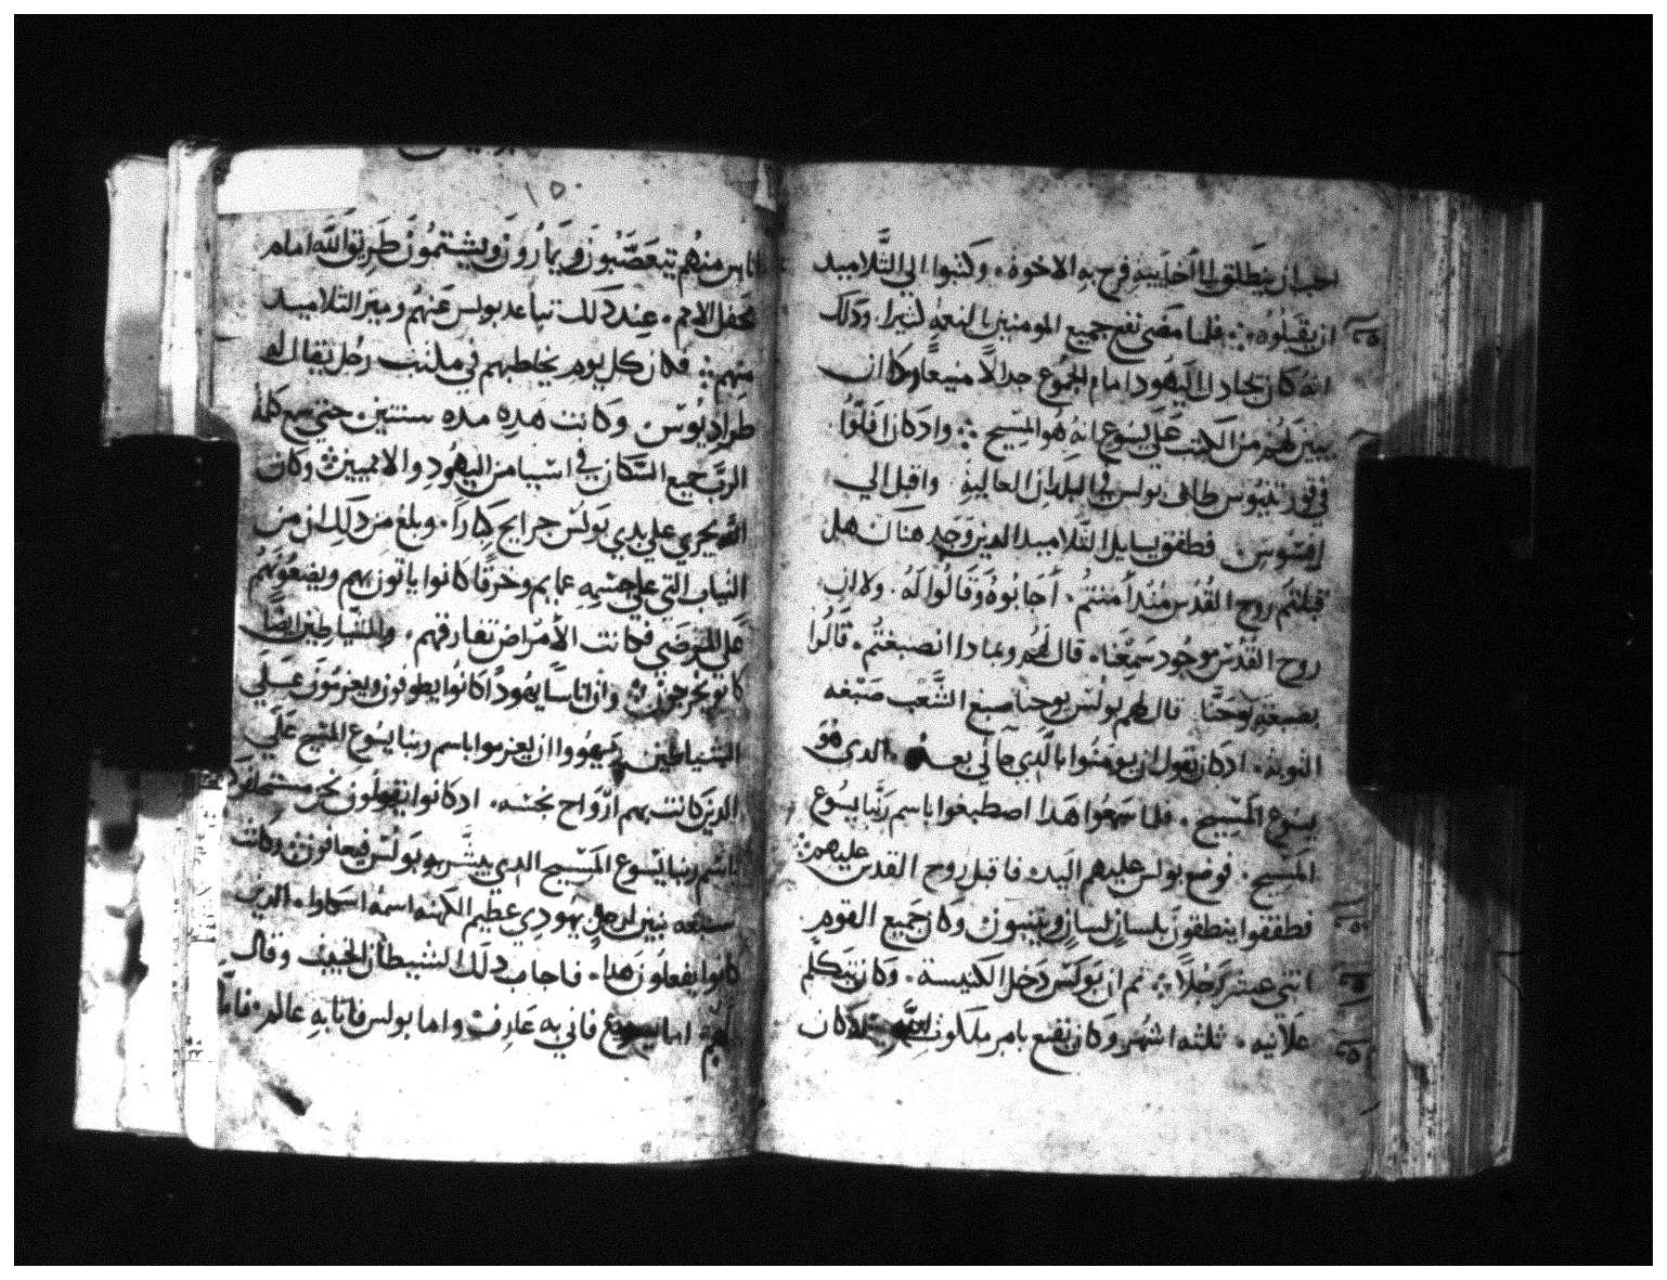 احب ان ينطلق الي أخاييه فرح به الاخوة. وكتبوا الي التَّلاميد
ان يقبلوه ⁘ فلما مضي نفع جميع المومنين بالنعمه كثيرا. ودلك
انه كان يجادل اليَهود امام الجموع جدالاً منيعًا وكان
يبين لهم من الكتب علَي يسُوع انه هُو المسيح ⁘ واد كان افلّوا
في قورنتيوس طاف بولس في البلدان العاليه واقبل الي
افسّوس. فطفق يسايل التَّلاميد الدين وَجد هنَاك هل
قبلتم روح القُدُس مُند أمنتم. أجَابُوهُ وَقَالُوا لَهُ. ولا ان
روح القدُس موجُود سَمِعْنا. قال لهُم وبمادا انصبغتُم. قالُوا
بصبغة يوحَنَّا قال لهم بولُس يوحنا صبغ الشَّعْب صَبْغه
التوبة. اد كان يقول ان يومنُوا بالَّدِي ياتي بعده. الدي هُوَ
يسوع المَسِيح. فلما سَمعُوا هَدا اصطبغوا باسم رَبّنا يسُوع
المَسِيح. فوضع بولس عليهم اليد فاقبل روح القدس عليهم
فطفقوا ينطقون بلسانٍ لسانٍ ويتنبون وكان جَميع القوم
اثني عشر رَجُلاً ⁘ ثم ان بَولس دَخل الكنيسة. وكان يتكلم
علانيه. ثلثه اشهُر وكان يقنع بامر ملكوت الله ⁘ وكان
اناس منهُم يتَعَصَّبُونَ ويمارُونَ ويشتمُونَ طَرِيق الله امام
محفل الامم. عِند دَلك تباعد بولس عَنهُم وميز التلاميد
منهم ⁘ فكان كل يوم يخاطبهم في مكتب رجُل يقال له
طرادِيُوس وكانت هَدِه مده سنتين. حتي سمع كلمة
الربّ جميع السّكان في اسّيا من اليهُودِ والامميين ⁘ وكان
اللّه يجري علي يدي بَولس جرايح كباراً. وبلغ من دَلك ان من
الثياب التي علي جسْمِهِ عمايم وخرقًا كانوا ياتون بهم ويضعُونَهُم
علي المَرضَي فكانت الأمْراض تفارقهم. والشّياطين ايضًا
كانو يخرجون ⁘ وان اناسًا يهُودًا كانُوا يطوفون ويعزمُون عَلَي
الشياطين يهُووا ان يعزموا باسم ربنا يسُوع المسيح عَلَي
الدين كانت بهم ارْواح نجسَه. اد كانوا يَقولُون نحن نستحلفكم
باسْم ربنا يسُوع المَسِيح الدي يبشّر به بَولس فيعافون وكانت
سبعه بنين لرجلٍ يهُودِي عظيم الكهنه اسمهُ اسكاوا. الدين
كانوا يفعلون هَدا. فاجاب دَلك الشيطان الخبيث وقال
لهم اما يسوع فاني به عَارِف واما بولس فانا بهِ عالم. فاما